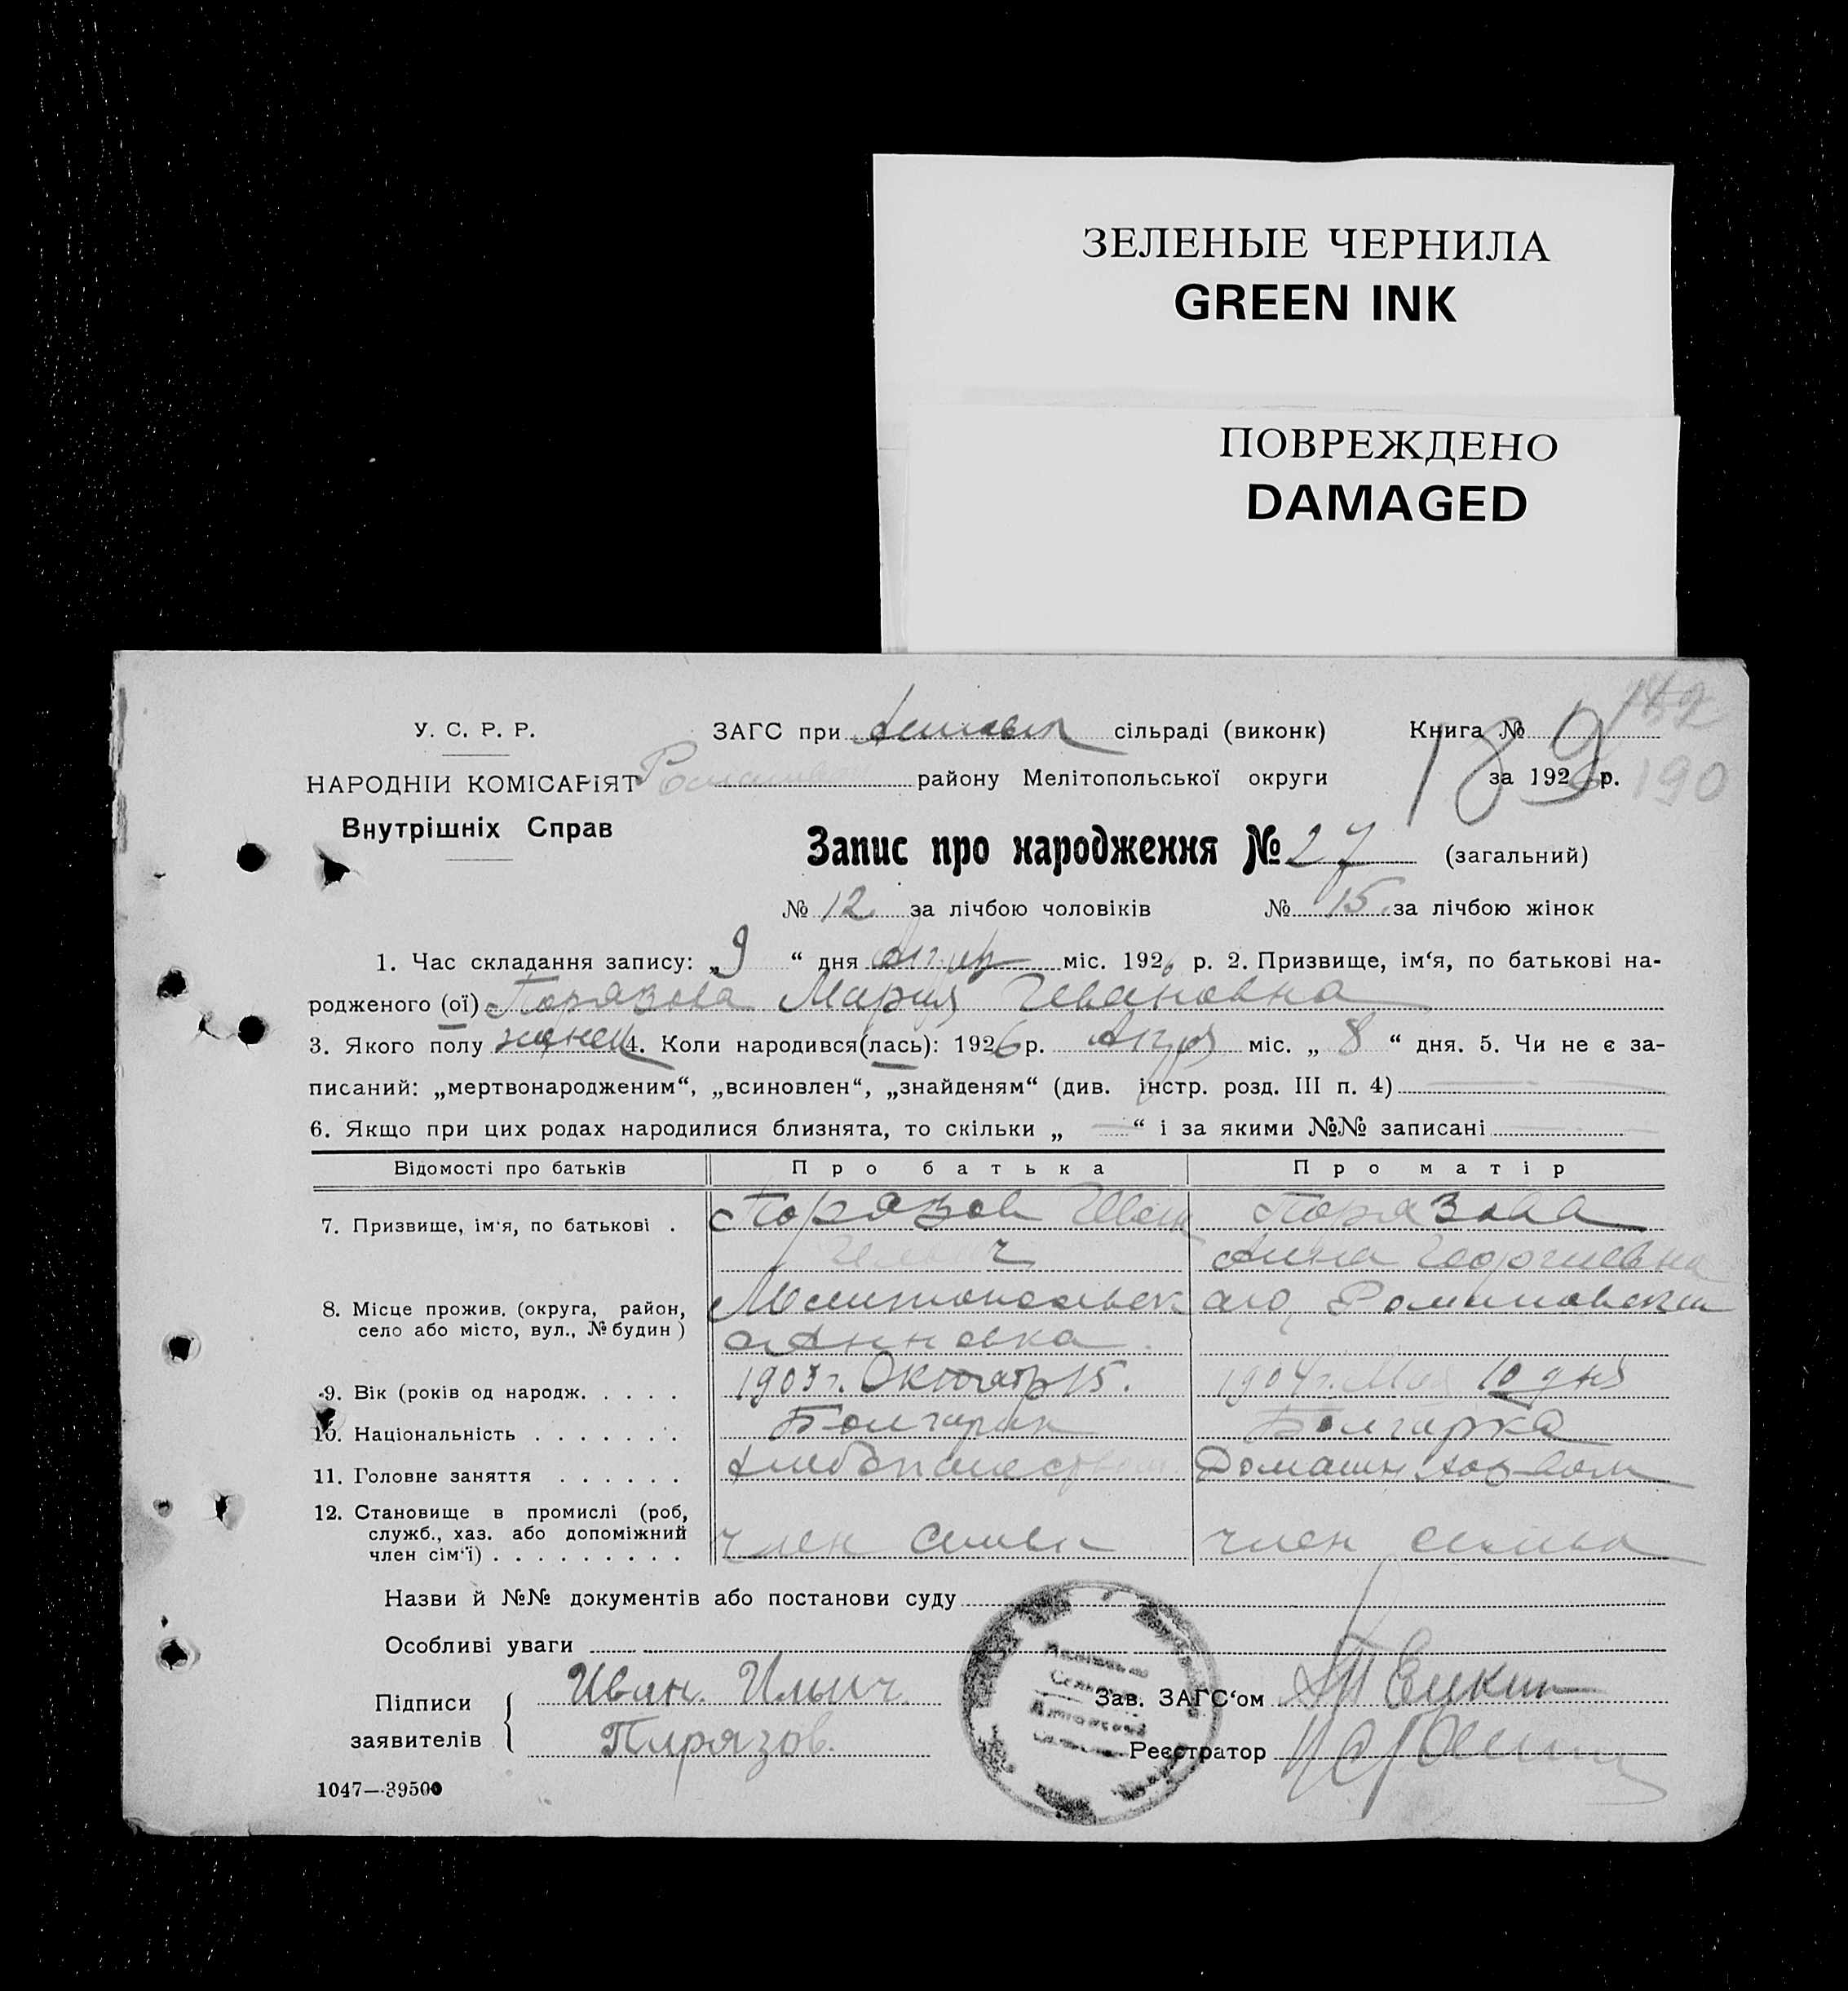 ЗЕЛЕНЫЕ ЧЕРНИЛА
GREEN INK
ПОВРЕЖДЕНО
DAMAGED
У. С. Р. Р.
НАРОДНІЙ КОМІСАРІЯТ
Внутрішніх Справ
ЗАГС при сільраді (виконк) Книга №
району Мелітопольської округи за 1926 р.
189
190
Запис про народження № 27 (загальний)
№ 12 за лічбою чоловіків № 15 за лічбою жінок
1. Час складання запису: „9“ дня міс. 1926 р. 2. Призвище, ім‘я, по батькові на-
родженого (ої) Порязова Мария Ивановна
3. Якого полу женск 4. Коли народився(лась): 1926 р. міс. „8“ дня. 5. Чи не є за-
писаний: „мертвонародженим“, „всиновлен“, „знайденям“ (див. інстр. розд. III п. 4) —
6. Якщо при цих родах народилися близнята, то скільки „—“ і за якими №№ записані —
Відомості про батьків Про батька Про матір
7. Призвище, ім‘я, по батькові . Порязов Иван Порязова
Ильич Анна Георгиевна
8. Місце прожив. (округа, район, Мелитопольск
село або місто, вул., № будин) Анновка
9. Вік (років од народж. . . . . 1903 г. Октября 15. 1904 г. Мая 10 дня
10. Національність . . . . . . . Болгарин Болгарка
11. Головне заняття . . . . . . Хлебопашеством Домашн
12. Становище в промислі (роб,
служб., хаз. або допоміжний
член сім‘ї) . . . . . . . . . член семьи член семьи
Назви й №№ документів або постанови суду
Особливі уваги
Підписи
заявителів
Иван. Ильич.
Пирязов.
Зав. ЗАГС‘ом
Реєстратор
1047—39500